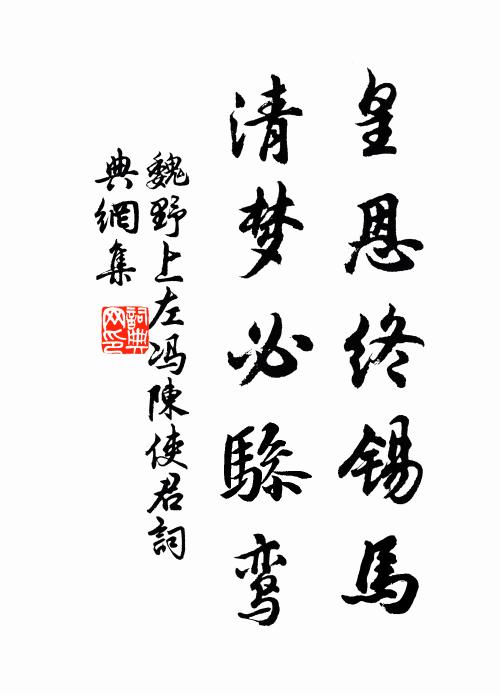 皇恩终锡馬
清梦必驂鸾
魏野上左冯陳使君詞
典網集
詞典
网印